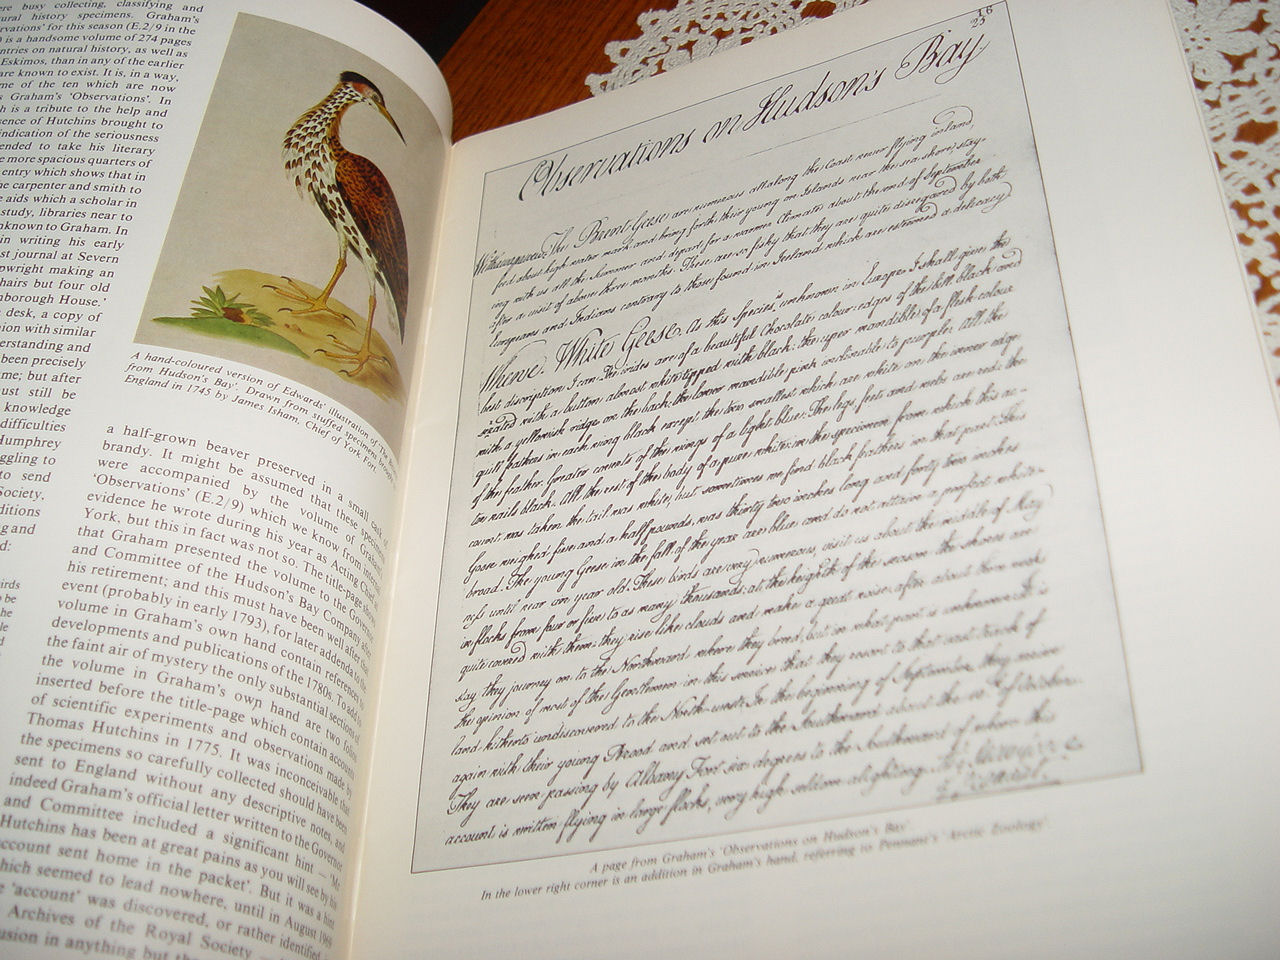 re busy collecting, classifying and
ural history specimens. Graham's
rvations' for this season (E.2/9 in the
) is a handsome volume of 274 pages
ntries on natural history, as well as
Eskimos, than in any of the earlier
are known to exist. It is, in a way,
me of the ten which are now
s Graham's 'Observations'. In
h is a tribute to the help and
sence of Hutchins brought to
indication of the seriousness
ended to take his literary
e more spacious quarters of
entry which shows that in
he carpenter and smith to
e aids which a scholar in
study, libraries near to
nknown to Graham. In
in writing his early
st journal at Severn
pwright making an
hairs but four old
nborough House.'
desk, a copy of
ion with similar
erstanding and
been precisely
me; but after
ust still be
knowledge
difficulties
Humphrey
ggling to
to send
Society,
ditions
g and
d:
A hand-coloured version of Edwards' illustration of
from Hudson's Bay'. Drawn from stuffed specimens brought
England in 1745 by James Isham, Chief of York Fort.
a half-grown beaver preserved in a small cask of
brandy. It might be assumed that these specimens
were accompanied by the volume of Graham's
'Observations' (E.2/9) which we know from internal
evidence he wrote during his year as Acting Chief at
York, but this in fact was not so. The title-page shows
that Graham presented the volume to the Governor
and Committee of the Hudson's Bay Company after
his retirement; and this must have been well after that
event (probably in early 1793), for later addenda to the
volume in Graham's own hand contain references to
developments and publications of the 1780s. To add to
the faint air of mystery the only substantial sections of
the volume in Graham's own hand are two folios
inserted before the title-page which contain accounts
of scientific experiments and observations made by
Thomas Hutchins in 1775. It was inconceivable that
the specimens so carefully collected should have been
sent to England without any descriptive notes, and
indeed Graham's official letter written to the Governor
and Committee included a significant hint – 'Mr
Hutchins has been at great pains as you will see by his
account sent home in the packet'. But it was a hint
which seemed to lead nowhere, until in August 1969
e 'account' was discovered, or rather identified
Archives of the Royal Society
usion in anything but the
16
23
Observations on Hudson's Bay
The Brent Geese are numerous all along the Coast never flying inland,
feed about high-water mark, and bring forth their young on Islands near the sea-shore; stay-
ing with us all the Summer and depart for a warmer Climate about the end of September
after a visit of about three months. These are so fishy that they are quite disregarded by both
Europeans and Indians contrary to those found in Ireland which are esteemed a delicacy
White Geese. As this Species is unknown in Europe I shall give the
best discription I can. The irides are of a beautiful Chocolate colour: edges of the bill black and
with a button almost white tipped with black: the upper mandible of a flesh-colour
with a yellowish ridge on the back; the lower mandible pink inclinable to purple. All the
quill feathers in each wing black except the ten smallest which are white on the inner edge
of the feather. Greater coverts of the wings of a light blue. The legs, feet and webs are red; the
toe nails black. All the rest of the body of a pure white: in the specimen from which this ac-
count was taken the tail was white; but sometimes we find black feathers in that part. This
Goose weighed five and a half pounds, was thirty two inches long and forty two inches
broad. The young Geese in the fall of the year are blue and do not attain a perfect white-
ness until near an year old. These birds are very numerous, visit us about the middle of May
in flocks from four or five to as many thousands: at the heighth of the season the shores are
quite covered with them: they rise like clouds and make a great noise; after about three week
stay they journey on to the Northward where they breed, but in what part is unknown. It is
the opinion of most of the Gentlemen in this service that they resort to that vast track of
land hitherto undiscovered to the North-west. In the beginning of September they arrive
again with their young Brood and set out to the Southward about the 10th of October.
They are seen passing by Albany Fort six degrees to the Southward of where this
account is written flying in large flocks, very high seldom alighting.
A page from Graham's 'Observations on Hudson's Bay'.
In the lower right corner is an addition in Graham's hand, referring to Pennant's 'Arctic Zoology'.